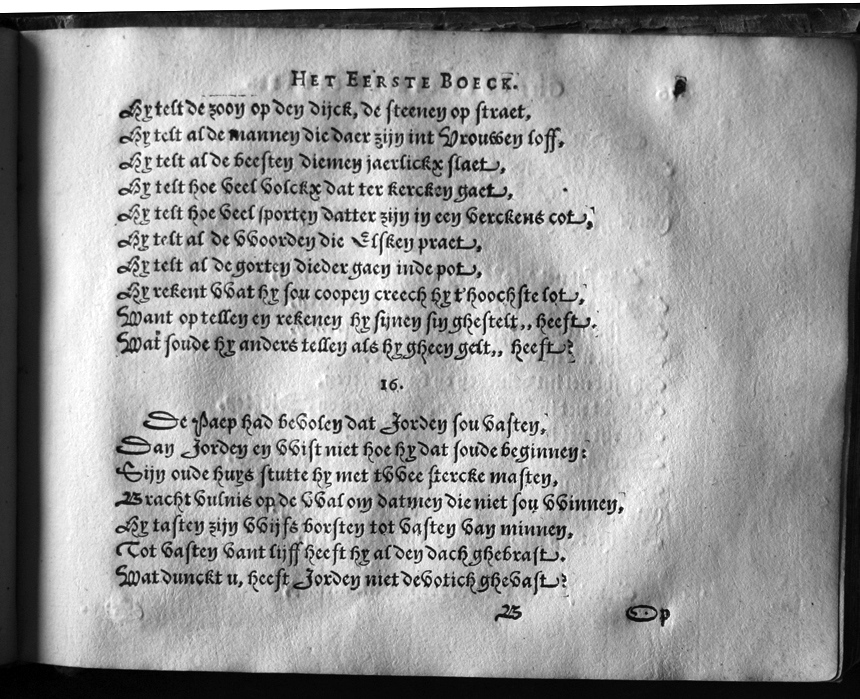 HET EERSTE BOECK.
Hy telt de zooy op den dijck, de steenen op straet,
Hy telt al de mannen die daer zijn int Vrouwen loff,
Hy telt al de beesten diemen jaerlickx slaet,
Hy telt hoe veel volckx dat ter kercken gaet,
Hy telt hoe veel sporten datter zijn in een verckens cot,
Hy telt al de woorden die Elsken praet,
Hy telt al de gorten dieder gaen inde pot,
Hy rekent wat hy sou coopen creech hy t'hoochste lot,
Want op tellen en rekenen hy sijnen sin ghestelt,, heeft.
Wat soude hy anders tellen als hy gheen gelt,, heeft?
16.
De Paep had bevolen dat Jorden sou vasten,
Dan Jorden en wist niet hoe hy dat soude beginnen:
Sijn oude huys stutte hy met twee stercke masten,
Bracht vulnis op de wal om datmen die niet sou winnen,
Hy tasten zijn wijfs borsten tot vasten van minnen,
Tot vasten vant lijff heeft hy al den dach ghebrast.
Wat dunckt u, heeft Jorden niet devotich ghevast?
B Op